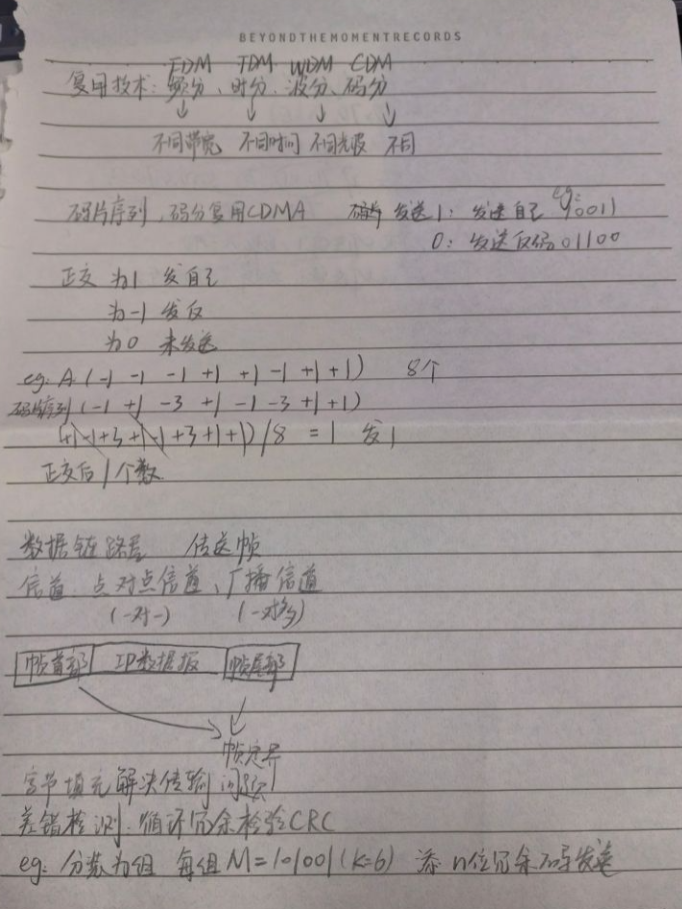 BEYONDTHEMOMENTRECORDS
FDM TDM WDM CDM
复用技术:频分、时分、波分、码分
不同带宽 不同时间 不同光波 不同
码片序列 码分复用CDMA 发送1:发送自己 eg:10011
0:发送反码01100
正交 为1 发自己
为-1 发反
为0 未发送
eg. A (-1 -1 -1 +1 +1 -1 +1 +1) 8个
码片序列 (-1 +1 -3 +1 -1 -3 +1 +1)
(+1-1+3+1-1+3+1+1)/8 = 1 发1
正交后/个数
数据链路层 传送帧
信道.点对点信道、广播信道
(一对一) (一对多)
帧首部 IP数据报 帧尾部
帧定界
字节填充解决传输问题
差错检测.循环冗余检验CRC
eg: 分装为组 每组M=101001(k=6) 添n位冗余码发送